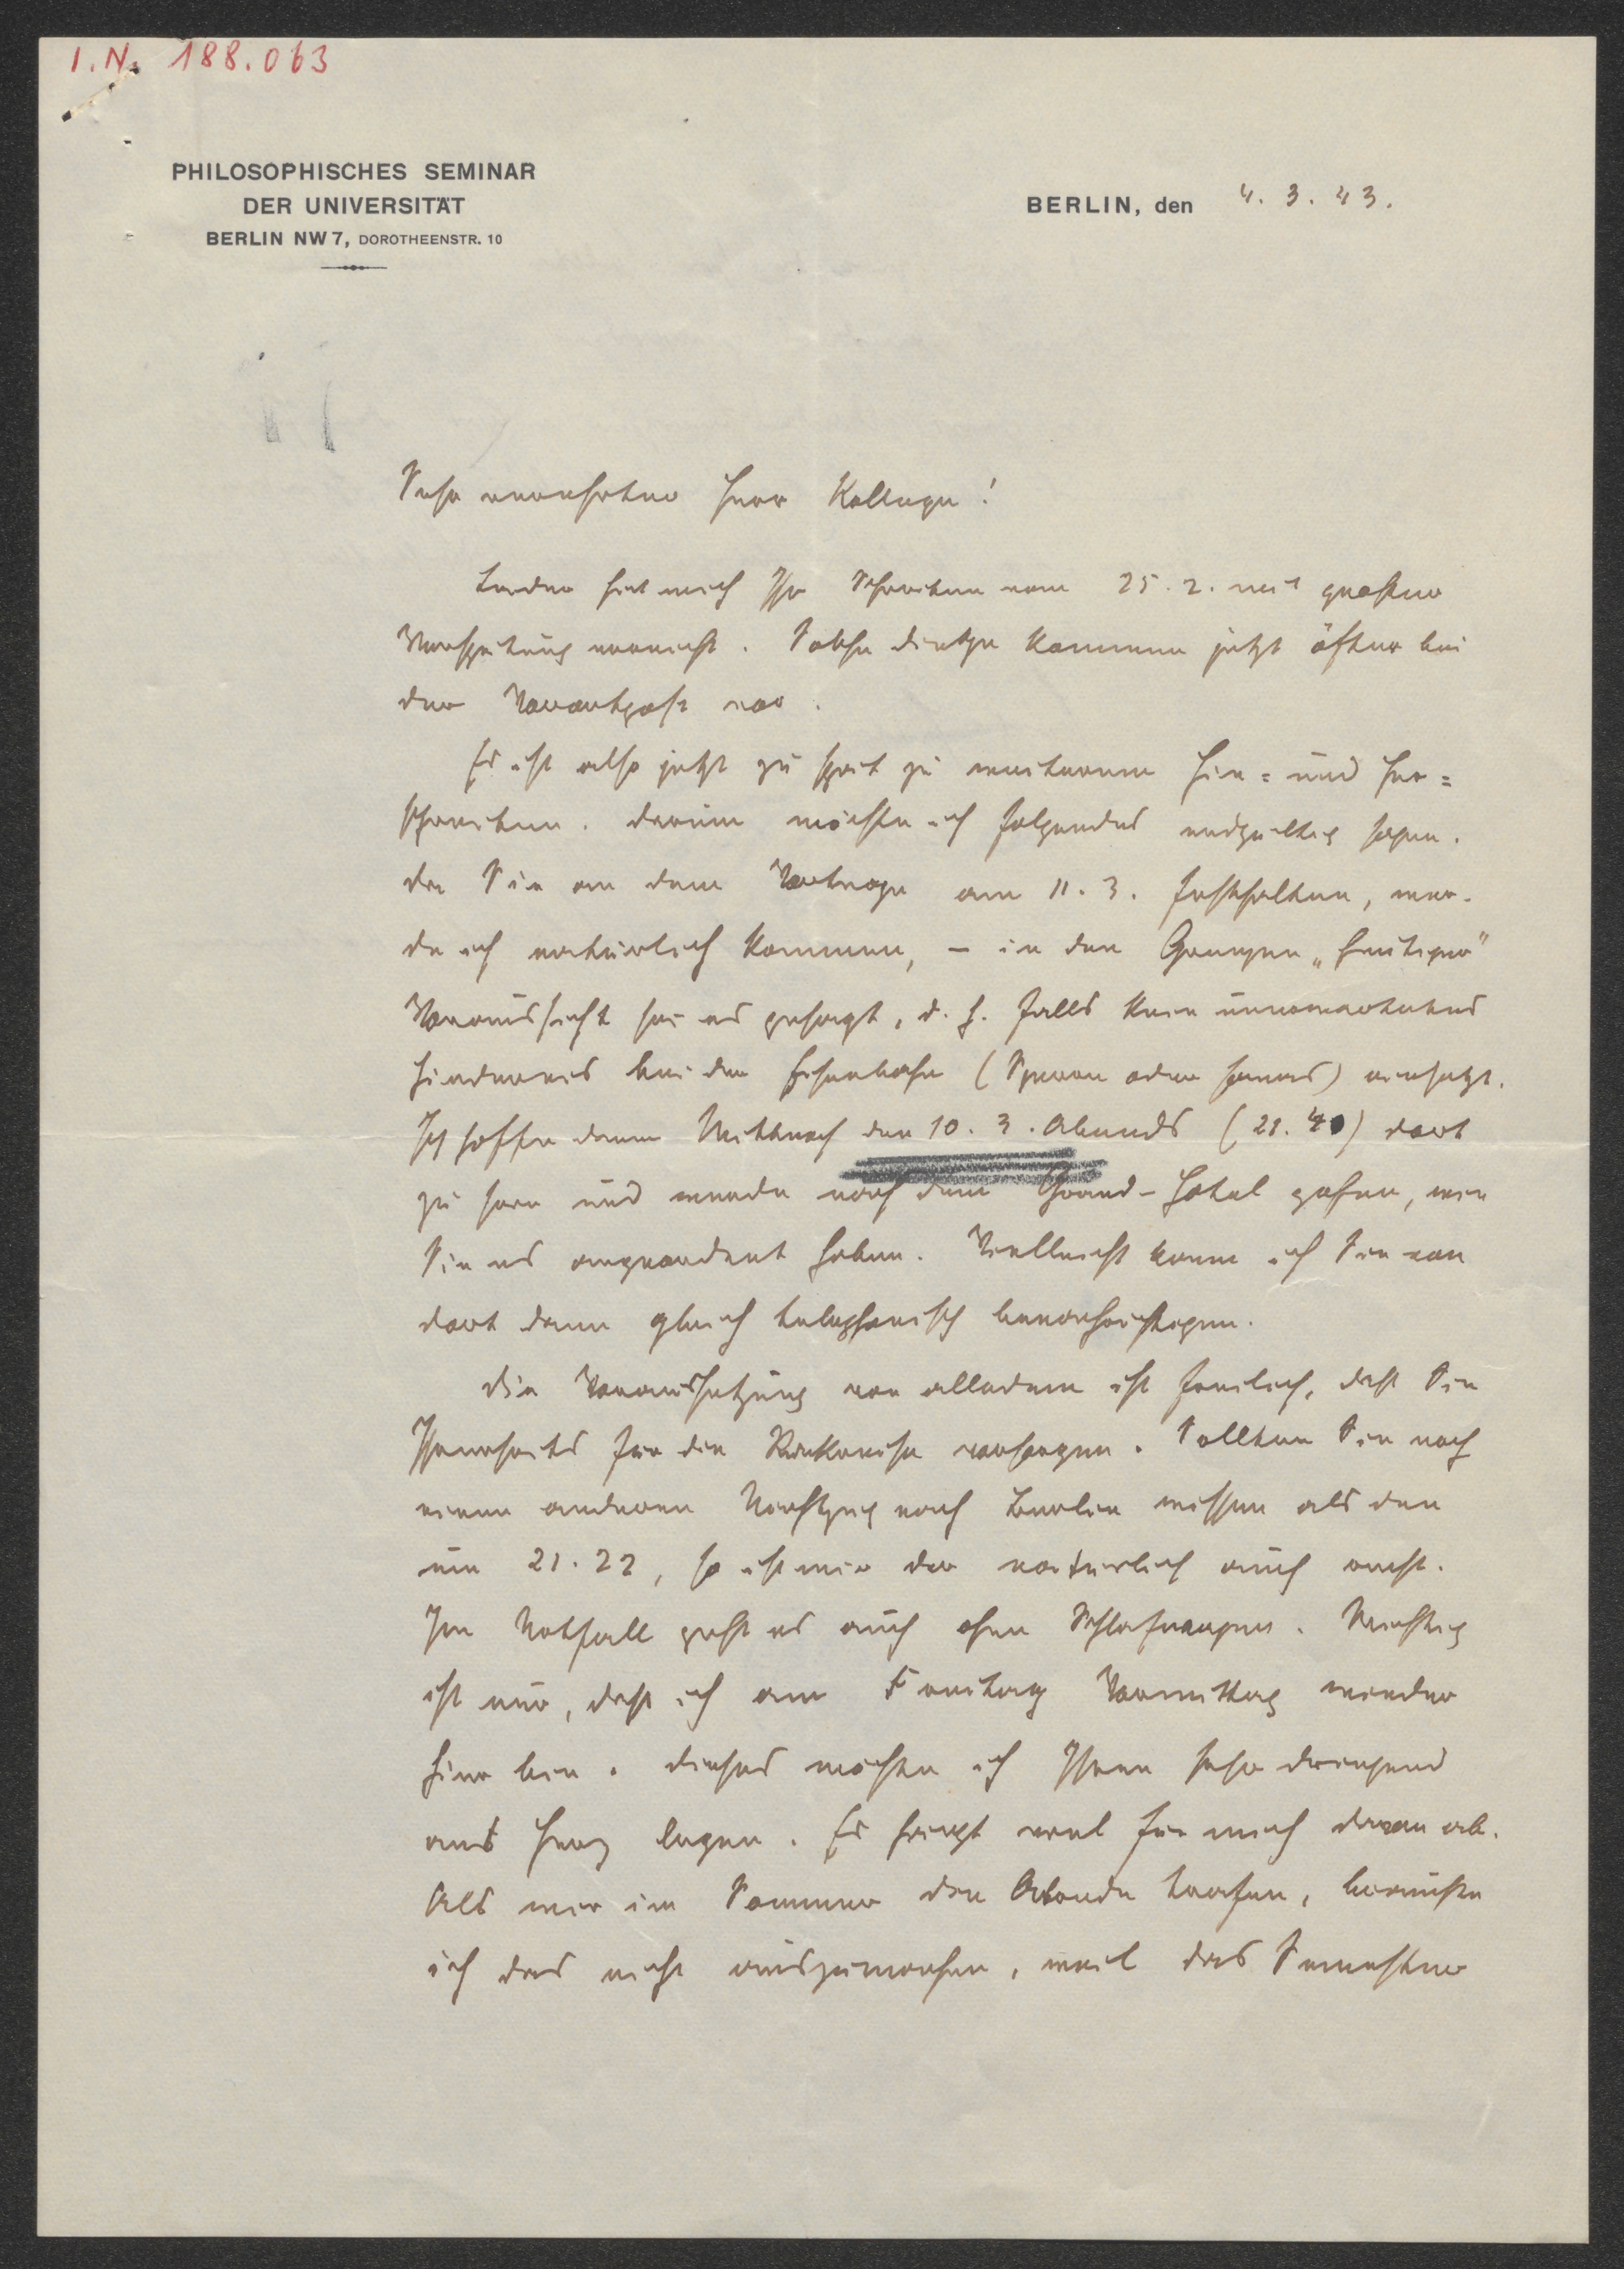 I.N. 188.063
PHILOSOPHISCHES SEMINAR
DER UNIVERSITÄT
BERLIN NW 7, DOROTHEENSTR. 10
BERLIN, den 4. 3. 43.
Sehr verehrter Herr Kollege!
Leider hat mich Ihr Schreiben vom 25. 2. mit großer
Verspätung erreicht. Solche Dinge kommen jetzt öfter bei
der vor.
Es ist also jetzt zu spät zu weiterem Hin= und Her=
schreiben. Darum möchte ich folgendes endgültig sagen.
Da Sie an dem Vortrage am 11. 3. festhalten, wer-
de ich natürlich kommen, – in den Grenzen „heutiger"
Voraussicht sei es gesagt, d. h. falls kein unerwartetes
Hindernis bei der Eisenbahn (Sperren oder ) einsetzt.
Ich hoffe dann Mittwoch den 10. 3. Abends (21. 40) dort
zu sein und werde nach dem Grand-Hotel gehen, wie
Sie es angeordnet haben. Vielleicht kann ich Sie von
dort dann gleich telephonisch benachrichtigen.
Die Voraussetzung von alledem ist freilich, daß Sie
Ihrerseits für die Rückreise vorsorgen. Sollten Sie noch
einen anderen Nachtzug nach Berlin wissen als den
um 21. 22, so ist mir der natürlich auch recht.
Im Notfall geht es auch ohne Schlafwagen. Wichtig
ist nur, daß ich am Freitag Vormittag wieder
hier bin. Dieses möchte ich Ihnen sehr dringend
ans Herz legen. Es hängt viel für mich daran ab.
Als wir im Sommer die Abrede trafen, brauchte
ich das nicht auszumachen, weil das Semester